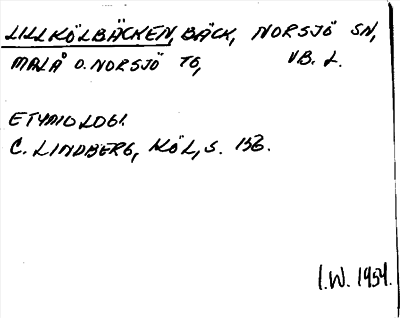 LILLKÖLBÄCKEN, BÄCK, NORSJÖ SN,
MALÅ O. NORSJÖ TG, VB. L.
ETYMOLOGI.
C. LINDBERG, KÖL, S.
I.W. 1954.